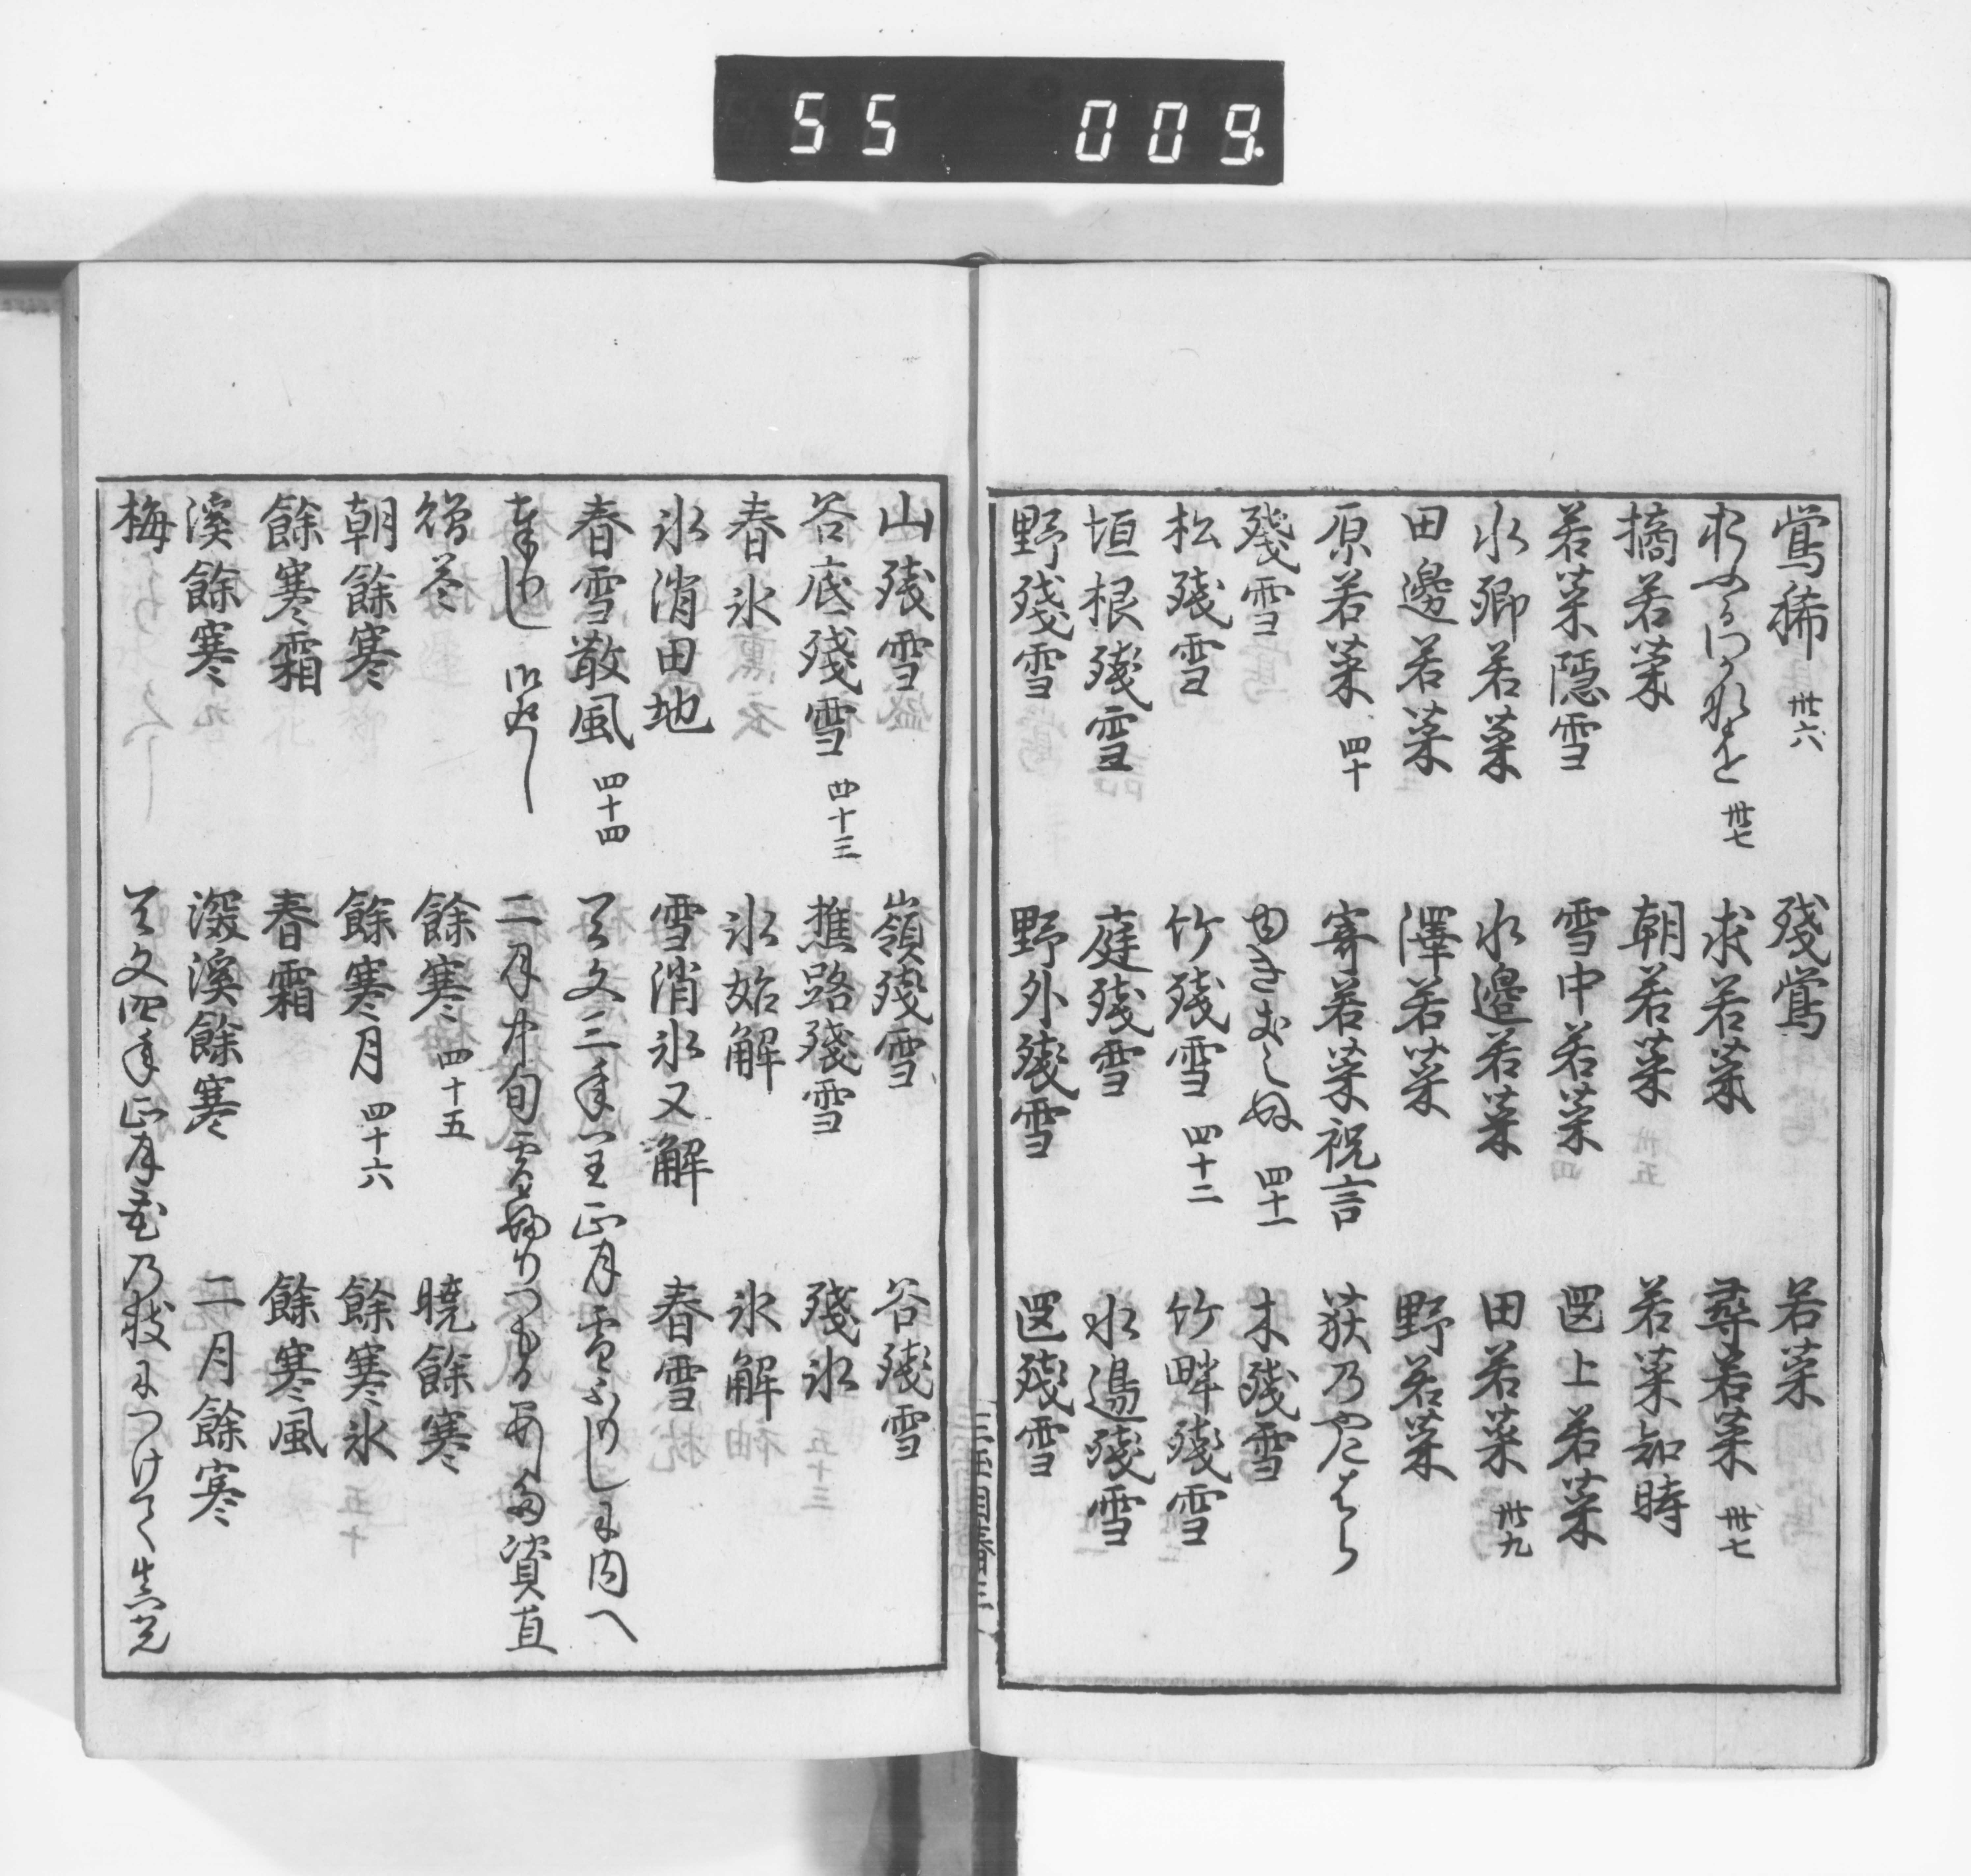 55 009
鶯稀 卅六 殘鶯 若菜
卅七 求若菜 尋若菜 卅七
摘若菜 朝若菜 若菜知時
若菜隠雪 雪中若菜 岡上若菜
水郷若菜 水邊若菜 田若菜 卅九
田邊若菜 澤若菜 野若菜
原若菜 四十 寄若菜祝言 荻乃やけはら
殘雪 四十一 木殘雪
松殘雪 竹殘雪 四十二 竹畔殘雪
垣根殘雪 庭殘雪 水邊殘雪
野殘雪 野外殘雪 岡殘雪
山殘雪 嶺殘雪 谷殘雪
谷底殘雪 四十三 樵路殘雪 殘氷
春氷 氷始解 氷解
氷消田地 雪消氷又解 春雪
春雪散風 四十四 天文三年 正月雪ふりしに内へ
御返し 二月中旬雪 資直
贈答 餘寒 四十五 曉餘寒
朝餘寒 餘寒月 四十六 餘寒氷
餘寒霜 春霜 餘寒風
溪餘寒 深溪餘寒 二月餘寒
梅 天文四年正月 乃枝につけて